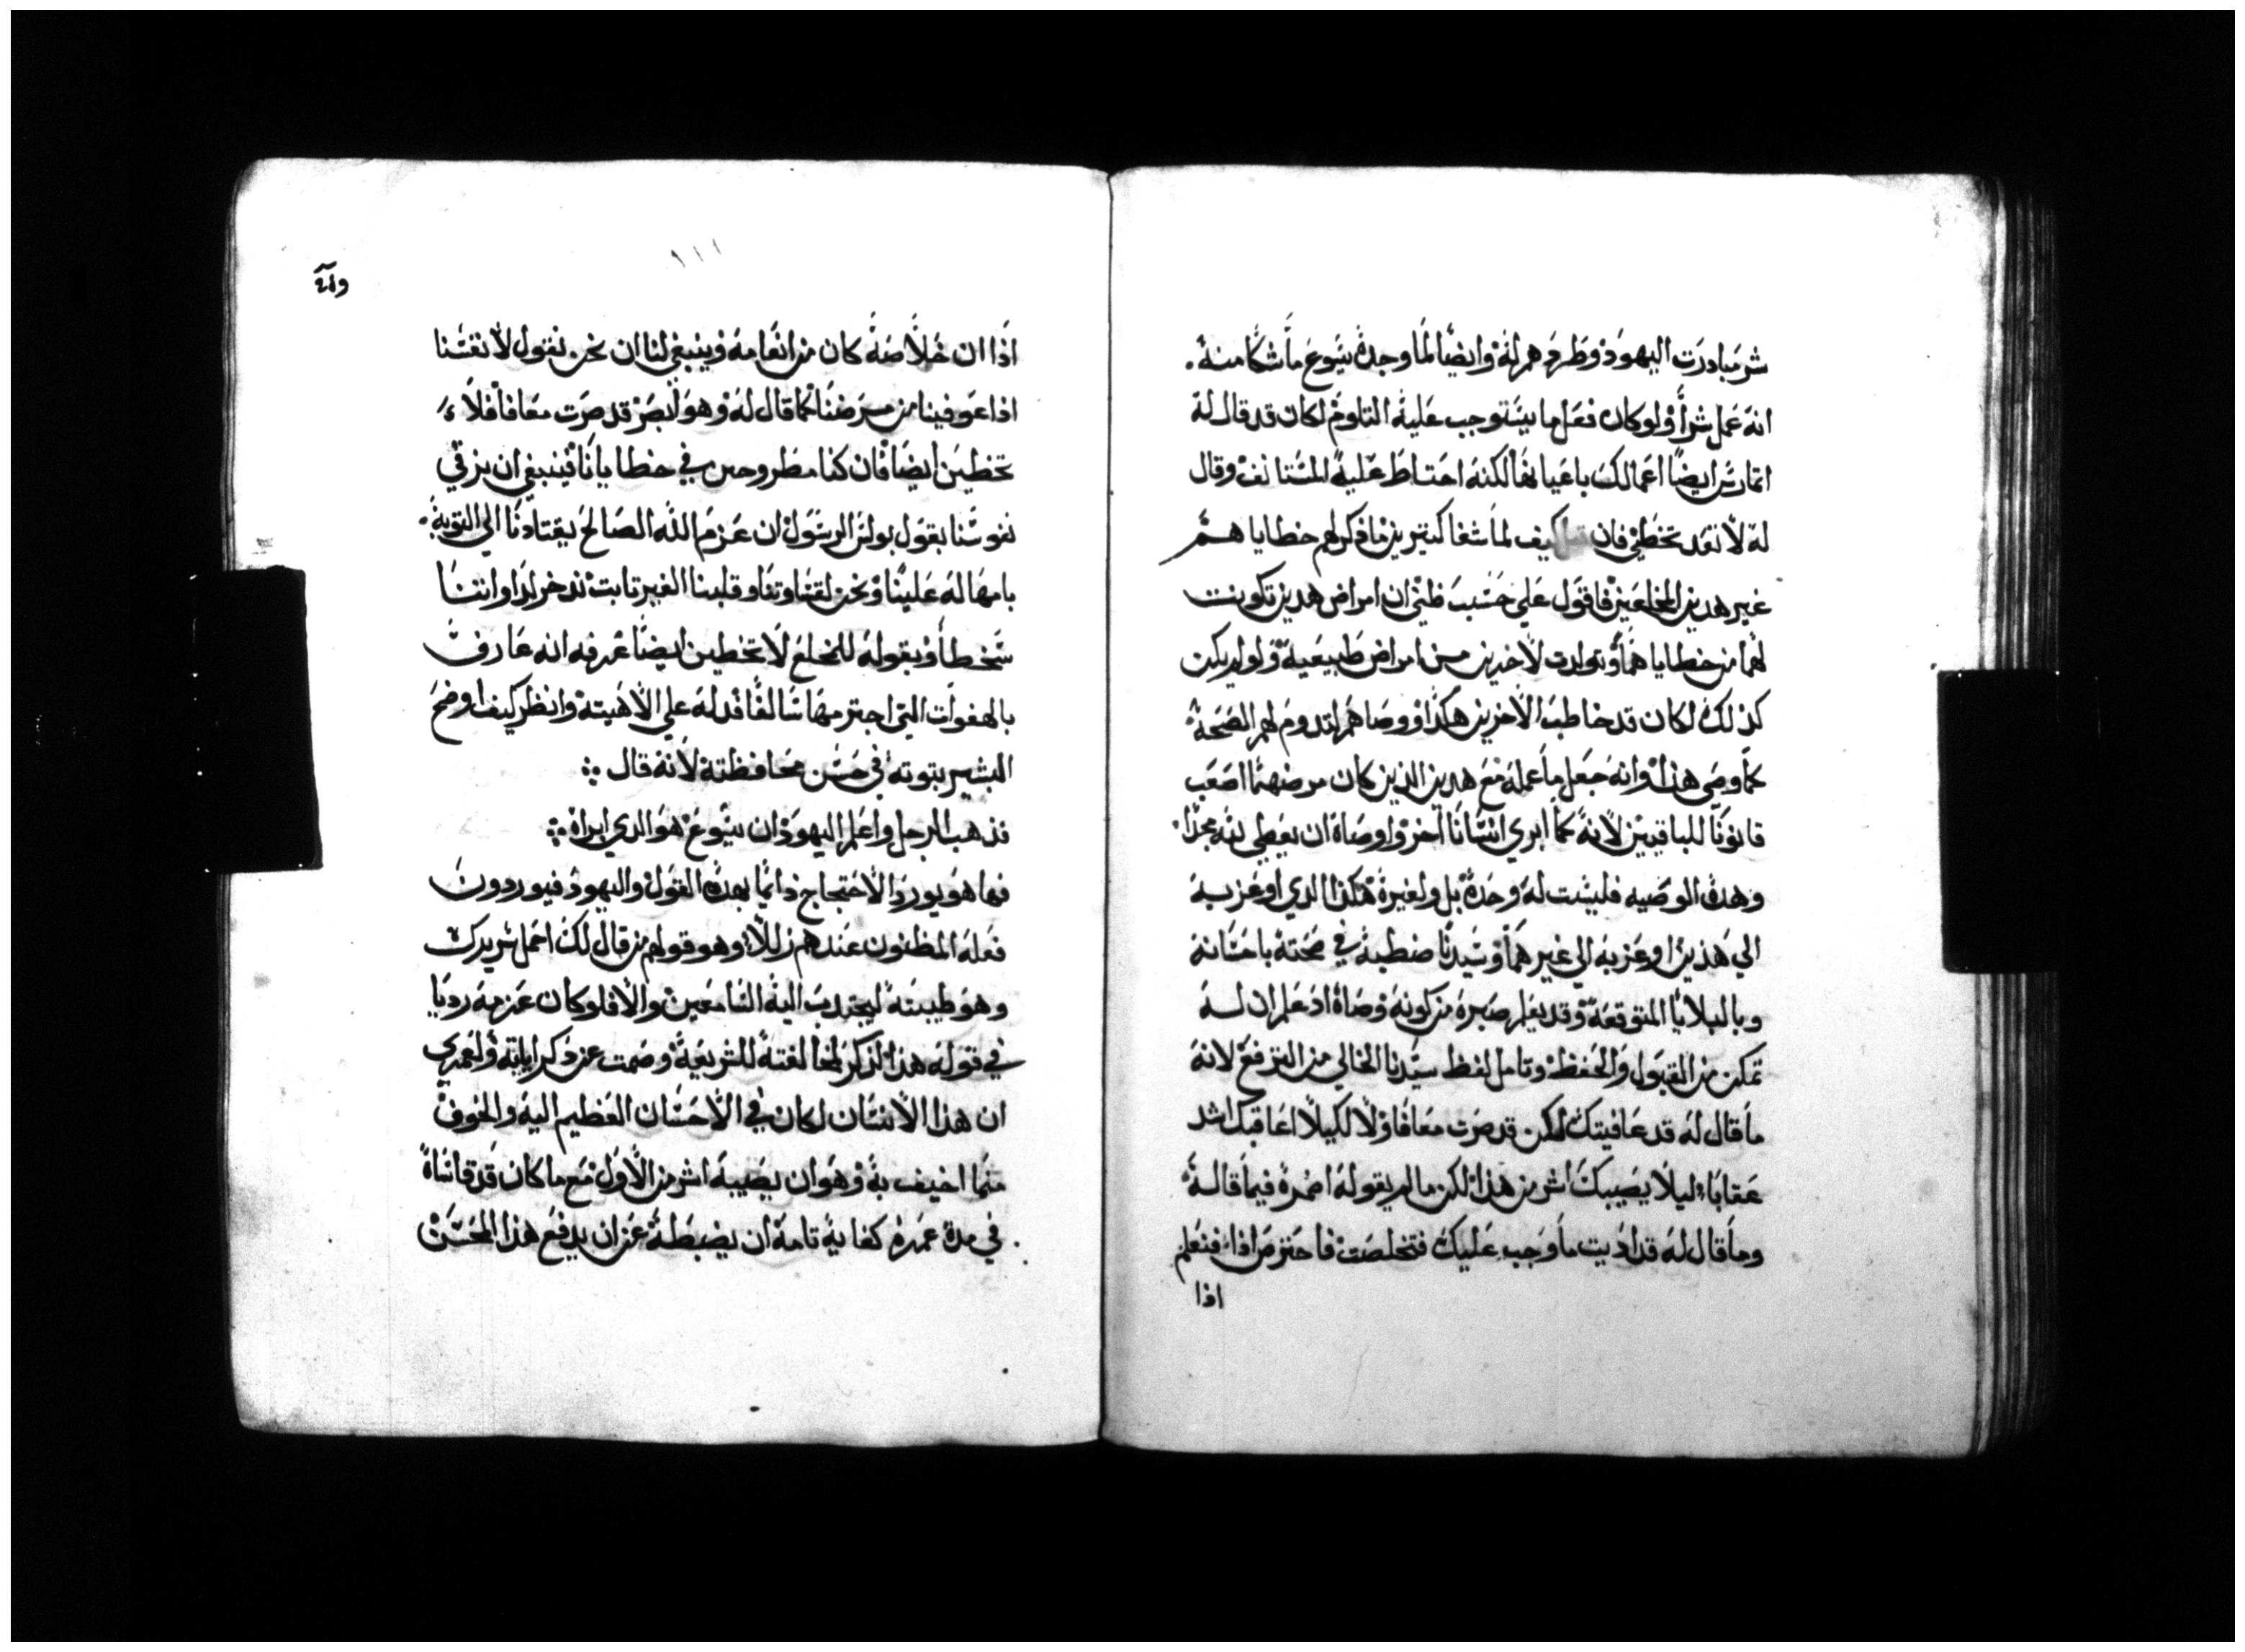 شر مبادرت اليهود وطردهم له وايضًا لما وجده يسوع ما شكا منه.
انه عمل شرًا ولو كان فعل ما يستوجب عليه التلوم لكان قد قال له
اتمارس ايضًا اعمالك باعيانها لكنه احتاط عليه المستانف وقال
له لا تعد تخطي فان كيف لما شفا كتيرين ما ذكر لهم خطاياهم
غير هدين المخلعين فاقول علي حسب ظني ان امراض هدين تكونت
لهما من خطاياهما وتولدت لاخرين من امراض طبيعية ولو لم يكن
كذلك لكان قد خاطب الاخرين هكذا ووصاهم لتدوم لهم الصحة
كما وصي هذا وانه جعل ما عمله مع هدين الذين كان مرضهما اصعب
قانونًا للباقيين لانه كما ابري انسانًا اخر واوصاه ان يعطي لله مجدًا
وهده الوصيه فليست له وحده بل ولغيره هكذا الدي اوعز به
الي هذين اوعز به الي غيرهما وسيدنا ضبطه في صحته باحسانه
وبالبلايا المتوقعة وقد يعلم صبره من كونه وصاه اد علم ان له
تمكن من القبول والحفظ وتامل لفظ سيدنا الخالي من الترفع لانه
ما قال له قد عافيتك لكن قد صرت معافا ولا لكيلا اعاقبك اشد
عقابًا ليلا يصيبك اشر من هذا لكن ما لم يقوله اضمره فيما قاله
وما قال له قد اديت ما وجب عليك فتخلصت فاحترص اذا فنعلم
اذا
١١١
اذا ان خلاصه كان من انعامه وينبغي لنا ان نحن نقول لانفسنا
اذا عوفينا من مرضنا كما قال له وهو لابصر قد صرت معافا فلا
تخطين ايضًا فان كنا مطروحين في خطايانا فينبغي ان نرقي
نفوسنا بقول بولس الرسول ان عزم الله الصالح يقتادنا الي التوبة
بامهاله علينا ونحن لقساوتنا وقلبنا الغير تابت ندخر لدواتنا
سخطًا وبقوله للمخلع لا تخطين ايضًا عرفه انه عارف
بالهفوات التي اجترمها سالفًا فدله علي الاهيته وانظر كيف اوضح
البشير بتوته في حسن محافظته لانه قال
فذهب الرجل واعلم اليهود ان يسوع هو الدي ابراه
فما هو يورد الاحتجاج دايمًا بهده القول واليهود فيوردون
فعله المظنون عندهم زللًا وهو قولهم من قال لك احمل سريرك
وهو طيبته ليجتدب اليه السامعين والا فلو كان عزمه رديا
في قوله هذا لذكر مخالفته للشريعة وصمت عن ذكر ايابته ولعمري
ان هذا الانسان لكان في الاحسان العظيم اليه والخوف
مما اخيف به وهو ان يصيبه اشر من الاول مع ما كان قد قاساه
في مدة عمره كفاية تامة ان يضبطه عن ان يدفع هذا المحسن